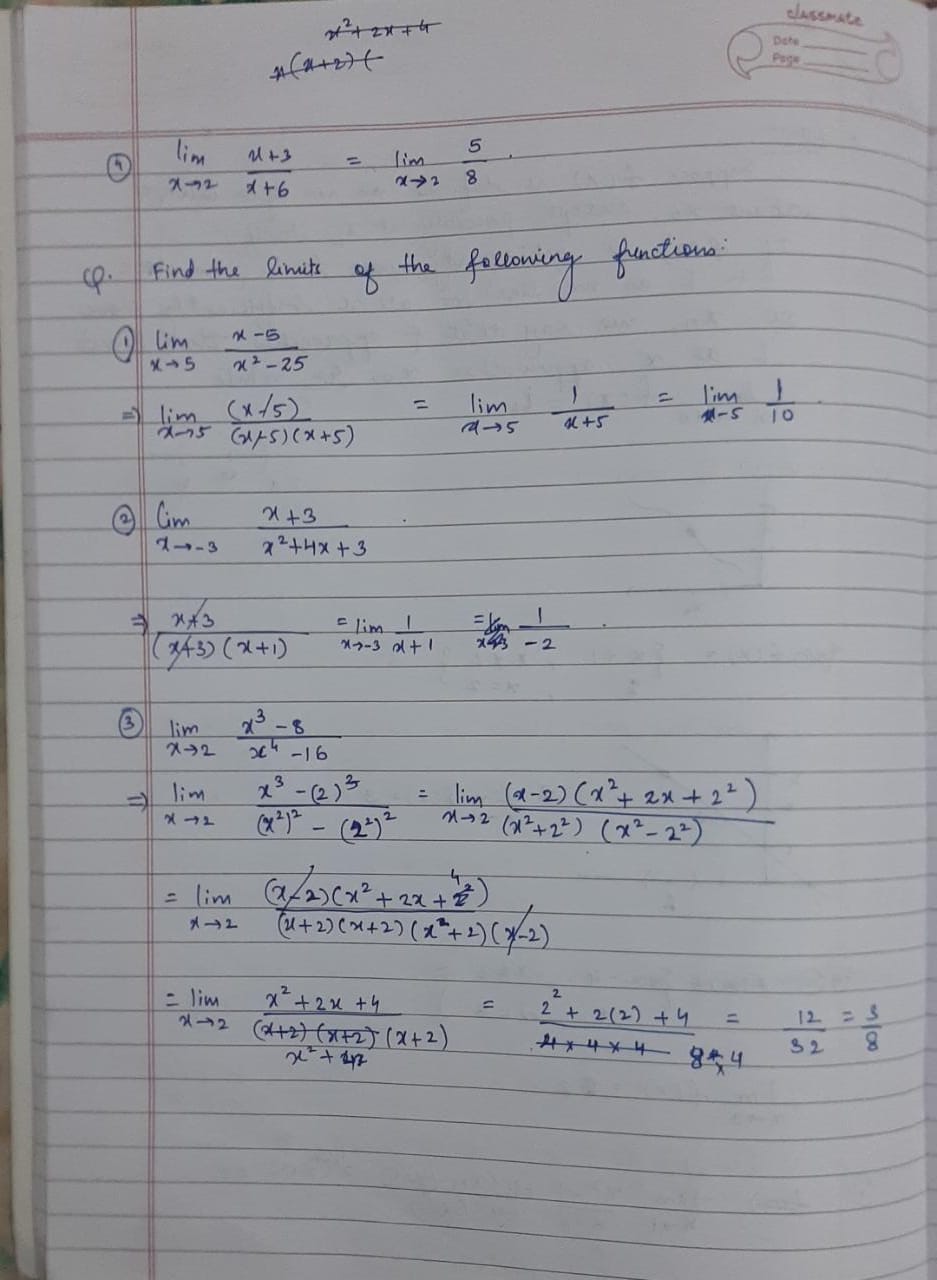 classmate
Date
Page
x²+2x+4
x(x+2)(
④ lim x→2 x+3/x+6 = lim x→2 5/8.
Q. Find the limits of the following functions:
① lim x→5 x-5/x²-25
⇒ lim x→5 (x-5)/(x-5)(x+5) = lim x→5 1/x+5 = lim x-5 1/10
② lim x→-3 x+3/x²+4x+3
⇒ x+3/(x+3)(x+1) = lim x→-3 1/x+1 = lim 1/-2.
③ lim x→2 x³-8/x⁴-16
⇒ lim x→2 x³-(2)³/(x²)²-(2²)² = lim x→2 (x-2)(x²+2x+2²)/(x²+2²)(x²-2²)
= lim x→2 (x-2)(x²+2x+4)/(x+2)(x+2)(x²+2)(x-2)
= lim x→2 x²+2x+4/(x+2)(x+2)(x+2) = 2²+2(2)+4/4×4×4 8×4 = 12/32 = 3/8
x²+